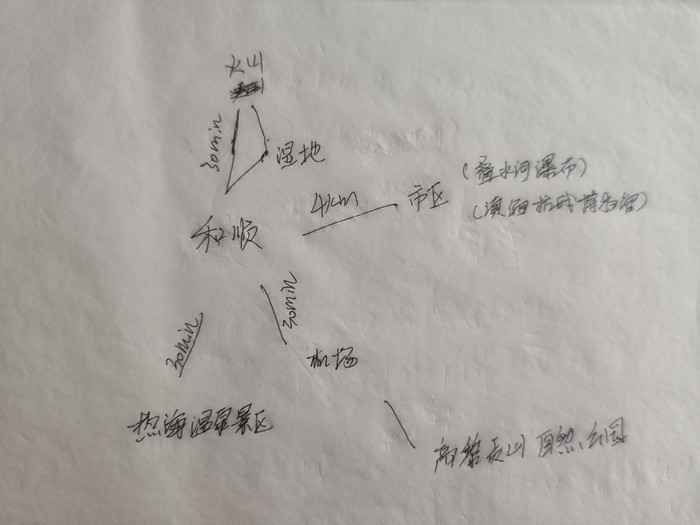 火山
30min
湿地
4km
市区
(叠水河瀑布)
(滇缅抗战博物馆)
和顺
30min
30min
机场
热海温泉景区
高黎贡山自然公园